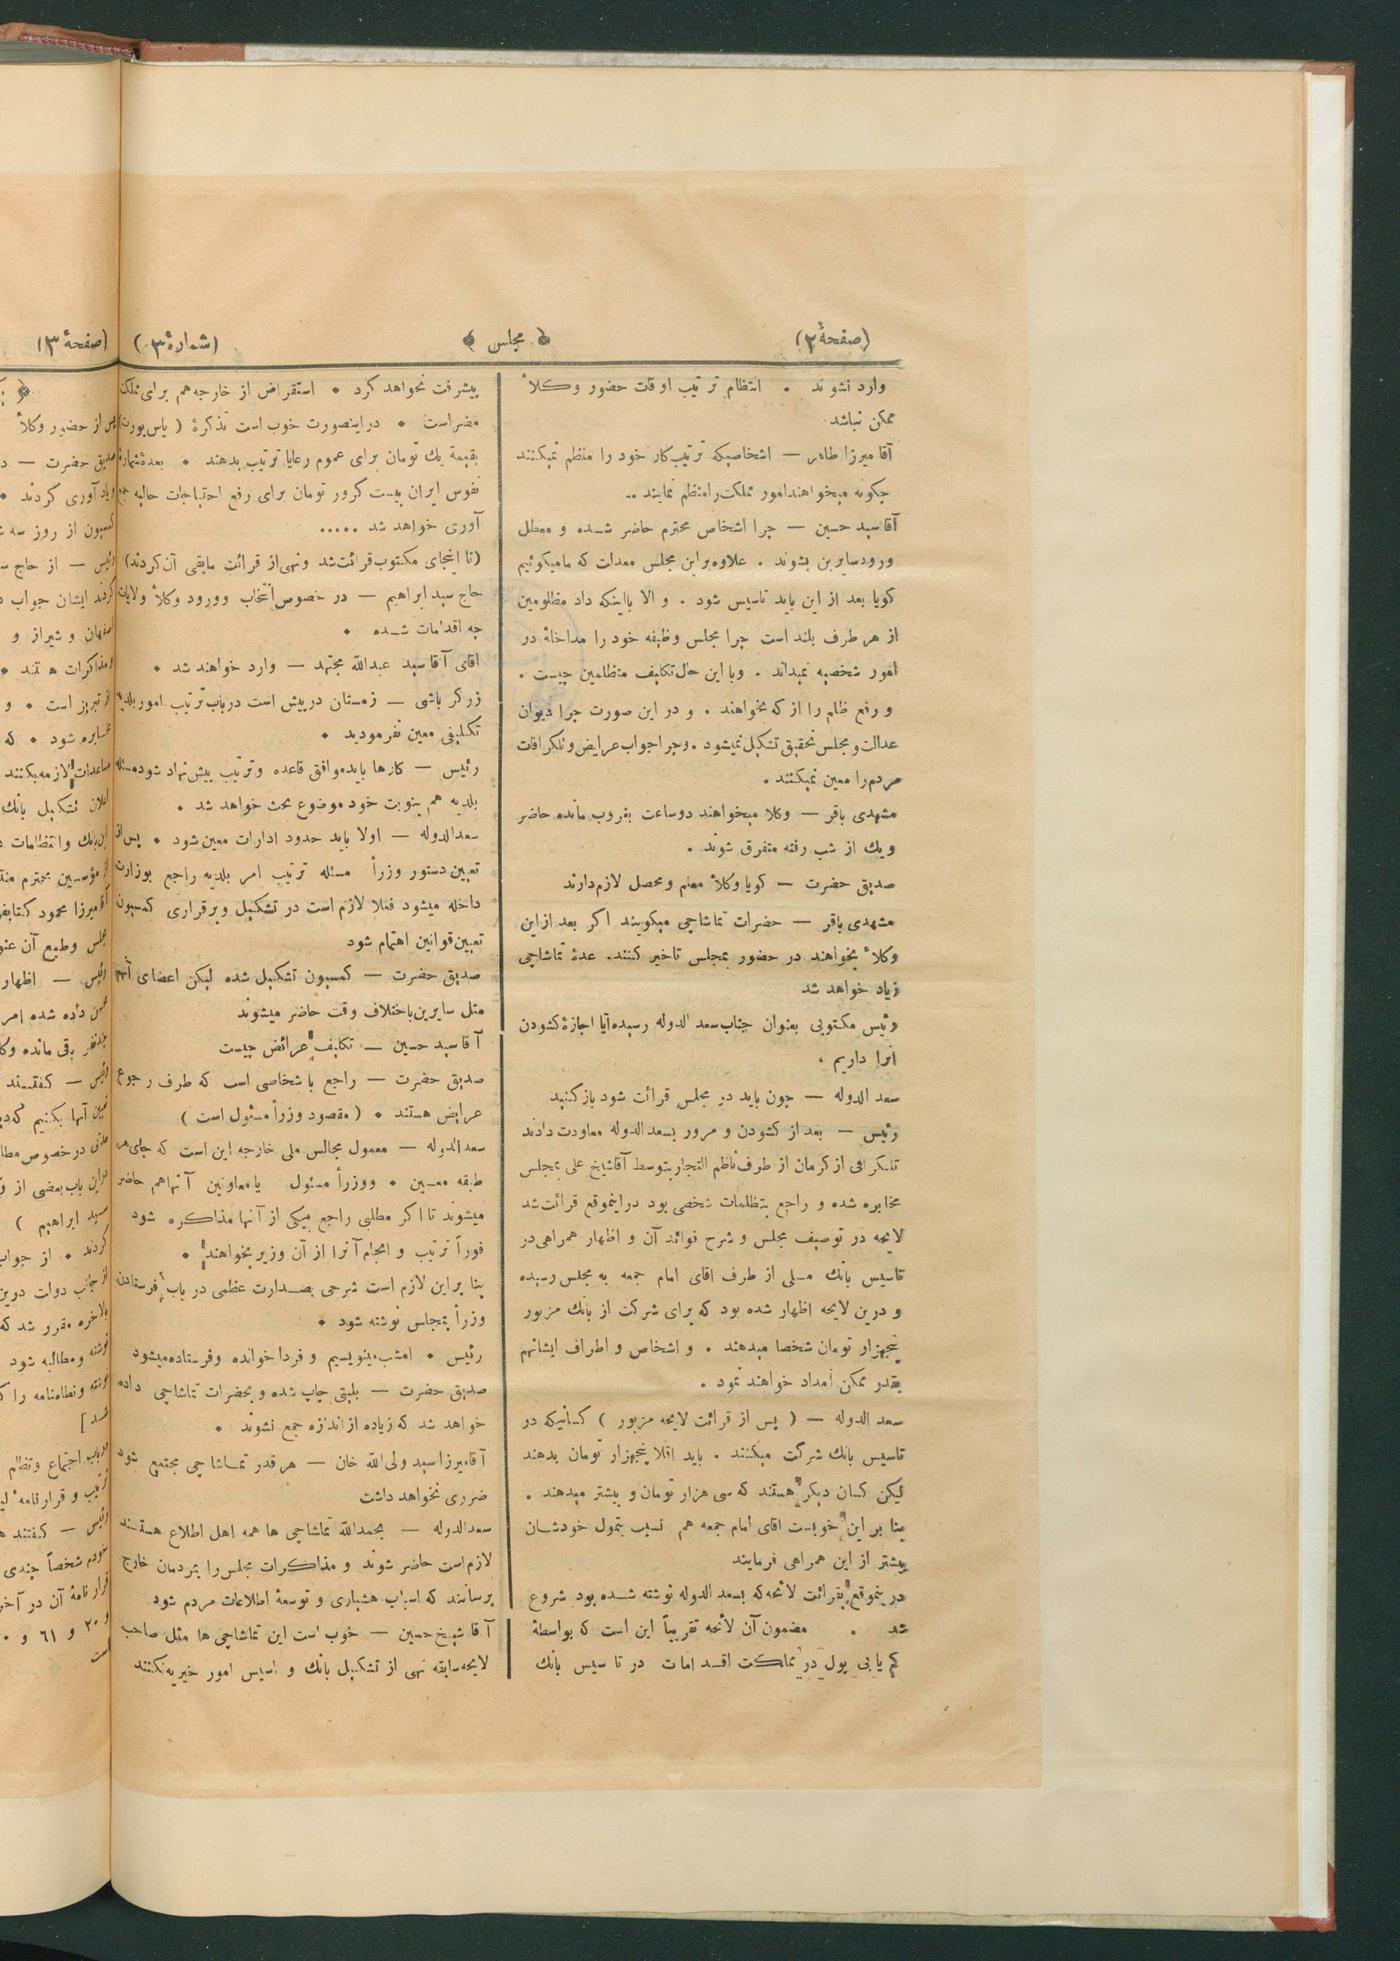 (صفحهٔ ۲)
﴿ مجلس ﴾
(شمارهٔ ۳)
وارد نشوند . انتظام ترتیب اوقات حضور وکلاٴ
ممکن نباشد
آقا میرزا طاهر — اشخاصیکه ترتیب کار خود را منظم نمیکنند
چکونه میخواهند امور مملکت را منظم نمایند ..
آقا سید حسین — چرا اشخاص محترم حاضر شده و معطل
ورود سایرین بشوند . علاوه بر این مجلس معدلت که ما میکوئیم
کویا بعد از این باید تاسیس شود . و الا با اینکه داد مظلومین
از هر طرف بلند است چرا مجلس وظیفه خود را مداخلهٔ در
امور شخصیه نمیداند . و با این حال تکلیف متظلمین چیست .
و رفع ظلم را از که بخواهند . و در این صورت چرا دیوان
عدالت و مجلس تحقیق تشکیل نمیشود . و چرا جواب عرایض و تلکرافات
مردم را معین نمیکنند .
مشهدی باقر — وکلا میخواهند دو ساعت بغروب مانده حاضر
و یك از شب رفته متفرق شوند .
صدیق حضرت — کویا وکلاٴ معلم و محصل لازم دارند
مشهدی باقر — حضرات تماشاچی میکویند اکر بعد از این
وکلاٴ بخواهند در حضور بمجلس تاخیر کنند. عدهٔ تماشاچی
زیاد خواهد شد
رئیس مکتوبی بعنوان جناب سعد الدوله رسیده آیا اجازهٔ کشودن
آنرا داریم .
سعد الدوله — چون باید در مجلس قرائت شود باز کنید
رئیس — بعد از کشودن و مرور بسعد الدوله معاودت دادند
تلکرافی از کرمان از طرف ناظم التجار بتوسط آقا شیخ علی بمجلس
مخابره شده و راجع بتظلمات شخصی بود در اینموقع قرائت شد
لایحه در توصیف مجلس و شرح فوائد آن و اظهار همراهی در
تاسیس بانك ملی از طرف اقای امام جمعه به مجلس رسیده
و درین لایحه اظهار شده بود که برای شرکت از بانك مزبور
پنجهزار تومان شخصا میدهند . و اشخاص و اطراف ایشانهم
بقدر ممکن امداد خواهند نمود .
سعد الدوله — ( پس از قرائت لایحه مزبور ) کسانیکه در
تاسیس بانك شرکت میکنند . باید اقلا پنجهزار تومان بدهند
لیکن کسان دیکر هستند که سی هزار تومان و بیشتر میدهند .
بنا بر این خوبست اقای امام جمعه هم نسبت بتمول خودشان
بیشتر از این همراهی فرمایند
درینموقع بقرائت لائحه که بسعد الدوله نوشته شده بود شروع
شد . مضمون آن لائحه تقریباً این است که بواسطهٔ
کم یابی پول در مملکت اقدامات در تاسیس بانك
پیشرفت نخواهد کرد * استقراض از خارجه هم برای مملکت
مضر است * در اینصورت خوب است تذکرهٔ ( پاس پورت)
بقیمة یك تومان برای عموم رعایا ترتیب بدهند * بعدهٔ شماره
نفوس ایران بیست کرور تومان برای رفع احتیاجات حالیه جمع
آوری خواهد شد .....
(تا اینجای مکتوب قرائت شد و نهی از قرائت مابقی آن کردند)
حاج سید ابراهیم — در خصوص انتخاب و ورود وکلاٴ ولایات
چه اقدامات شده *
اقای آقا سید عبدالله مجتهد — وارد خواهند شد *
زرکر باشی — زمستان در پیش است در باب ترتیب امور بلدیه
تکلیفی معین نفرمودید *
رئیس — کارها باید موافق قاعده و ترتیب پیش نهاد شود مسئله
بلدیه هم بنوبت خود موضوع بحث خواهد شد .
سعد الدوله — اولا باید حدود ادارات معین شود * پس از
تعیین دستور وزراٴ مسئله ترتیب امر بلدیه راجع بوزارت
داخله میشود فعلا لازم است در تشکیل و برقراری کمسیون
تعیین قوانین اهتمام شود
صدیق حضرت — کمسیون تشکیل شده لیکن اعضای آنهم
مثل سایرین باختلاف وقت حاضر میشوند
آقا سید حسین — تکلیف عرائض چیست
صدیق حضرت — راجع باشخاصی است که طرف رجوع
عرایض هستند * ( مقصود وزراٴ مسئول است )
سعد الدوله — معمول مجالس ملی خارجه این است که جای هر
طبقه معین * و وزراٴ مسئول یا معاونین آنها هم حاضر
میشوند تا اکر مطلبی راجع بیکی از آنها مذاکره شود
فوراً ترتیب و انجام آنرا از آن وزیر بخواهند *
بنا بر این لازم است شرحی بصدارت عظمی در باب فرستادن
وزراٴ بمجلس نوشته شود *
رئیس * امشب مینویسیم و فردا خوانده و فرستاده میشود
صدیق حضرت — بلیتی چاپ شده و بحضرات تماشاچی داده
خواهد شد که زیاده از اندازه جمع نشوند *
آقا میرزا سید ولی الله خان — هر قدر تماشاچی مجتمع شود
ضرری نخواهد داشت
سعد الدوله — بحمدالله تماشاچی ها همه اهل اطلاع هستند
لازم است حاضر شوند و مذاکرات مجلس را بمردمان خارج
برسانند که اسباب هشیاری و توسعهٔ اطلاعات مردم شود
آقا شیخ حسین — خوب است این تماشاچی ها مثل صاحب
لایحه سابقه نهی از تشکیل بانك و تاسیس امور خیریه نکنند
(صفحهٔ ۳)
پس از حضور وکلاٴ
صدیق حضرت —
یاد آوری کردند *
کمسیون از روز سه
رئیس — از حاج
کردند ایشان جواب
اصفهان و شیراز و
ومذاکرات هستند *
از تبریز است * و
مخابره شود * که
مساعدات لازمه بکنند
اعلان تشکیل بانك
این بانك و انتظامات
از مؤسسین محترم
آقا میرزا محمود
مجلس وطبع آن
رئیس — اظهار
داده شده امر
باقی مانده
رئیس — کفتند
آنها بکنیم
در خصوص
این باب بعضی از
سید ابراهیم )
کردند * از جواب
از جانب دولت درین
بالاخره مقرر شد که
نوشته و مطالبه شود
و نظامنامه را
شد ]
در باب اجتماع و تظلم
ترتیب و قرار نامه
رئیس — کفتند
خودم شخصاً چندی
قرار نامهٔ آن در آخر
و ۲۰ و ۶۱ و
است